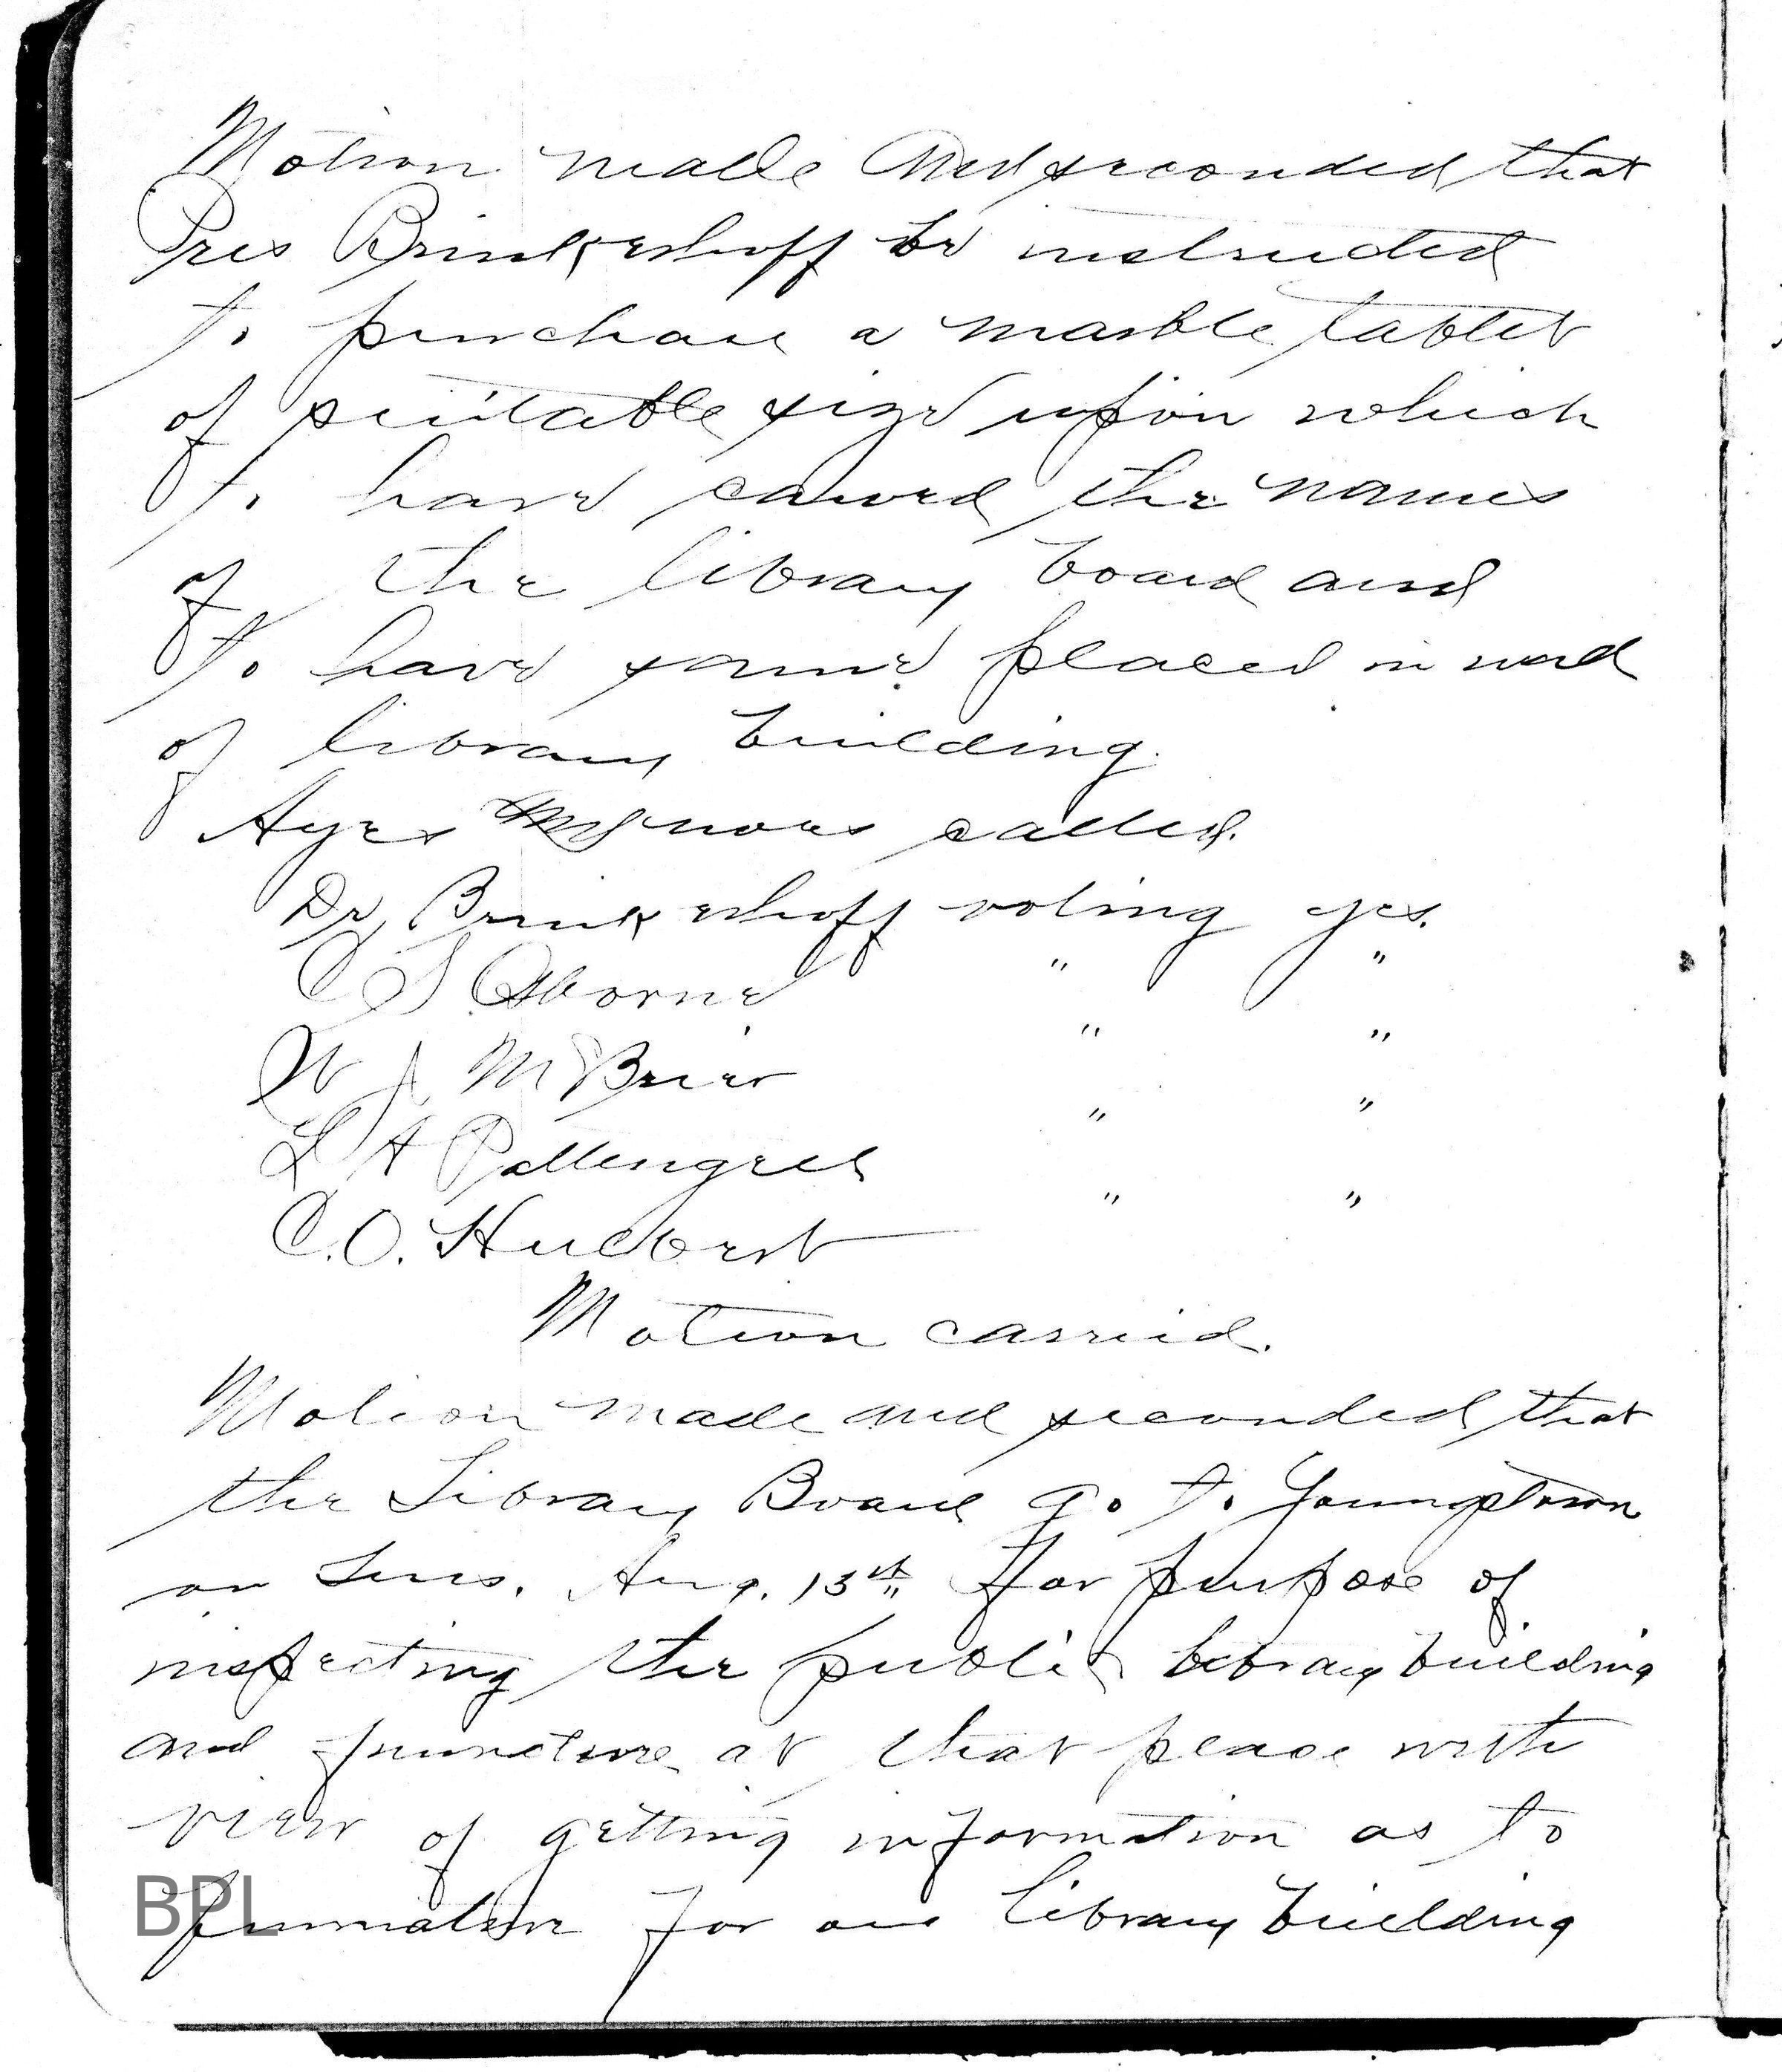 Motion made and seconded that
Pres Brinkerhoff be instructed
to purchase a marble tablet
of suitable size upon which
to have carved the names
of the library board and
to have same placed in wall
of library building.
Ayes and noes called.
Dr Brinkerhoff voting yes.
C S Osborne " "
W J McBrier " "
L A " "
C.O. Hubert " "
Motion carried.
Motion made and seconded that
the Library Board go to Youngstown
on Aug. 13th for purpose of
inspecting the public library building
and furniture at that place with
view of getting information as to
furniture for our library building
BPL